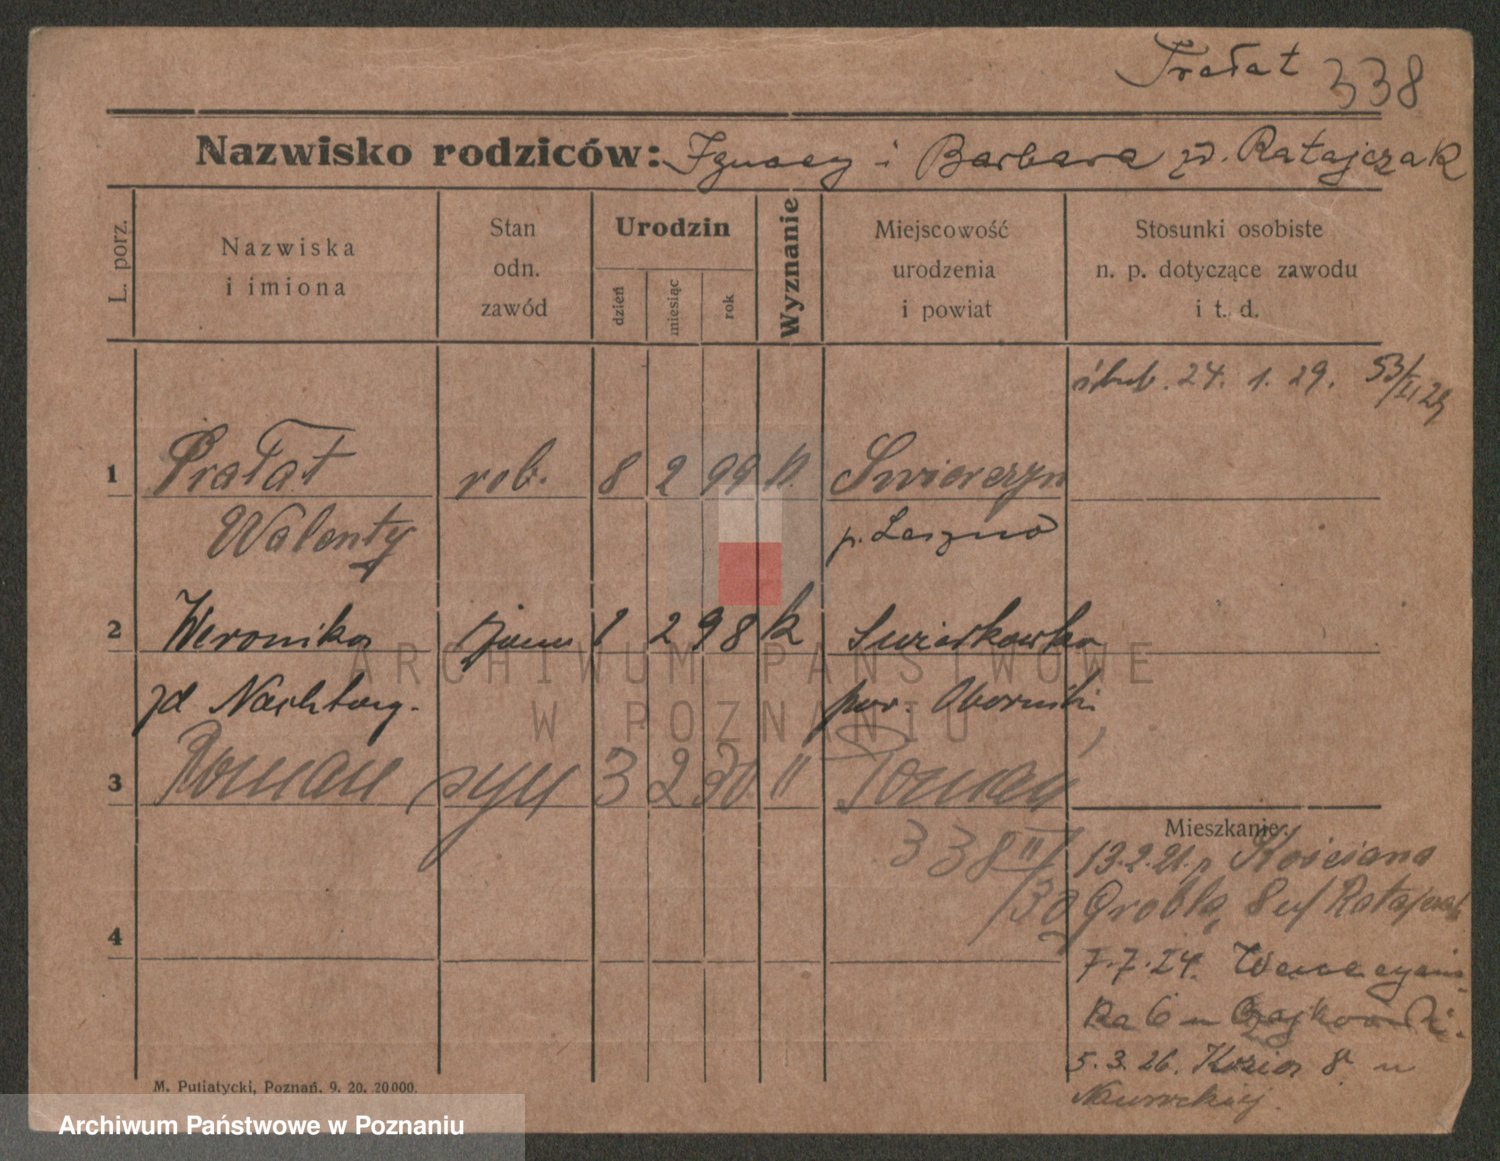 Prałat 338
Nazwisko rodziców: Ignacy i Barbara zd. Ratajczak
L. porz.
Nazwiska i imiona
Stan odn. zawód
Urodzin
dzień miesiąc rok
Wyznanie
Miejscowość urodzenia i powiat
Stosunki osobiste n. p. dotyczące zawodu i t. d.
ślub. 24. 1. 29. 53/II 29
1 Prałat rob. 8 2 99 k. Swierczyn
Walenty p. Leszno
2 Weronika żona 1 2 98 k
zd pow. Oborniki
3 Roman syn 3 2 30 " Poznań
338 II/30
Mieszkanie:
13.2.21. Kościana
Grobla 8 u/ Ratajczak
4
7.7.24.
ka 6 u
5.3.26. Kozia 8 u
M. Putiatycki, Poznań. 9. 20. 20000.
ARCHIWUM PAŃSTWOWE
W POZNANIU
Archiwum Państwowe w Poznaniu